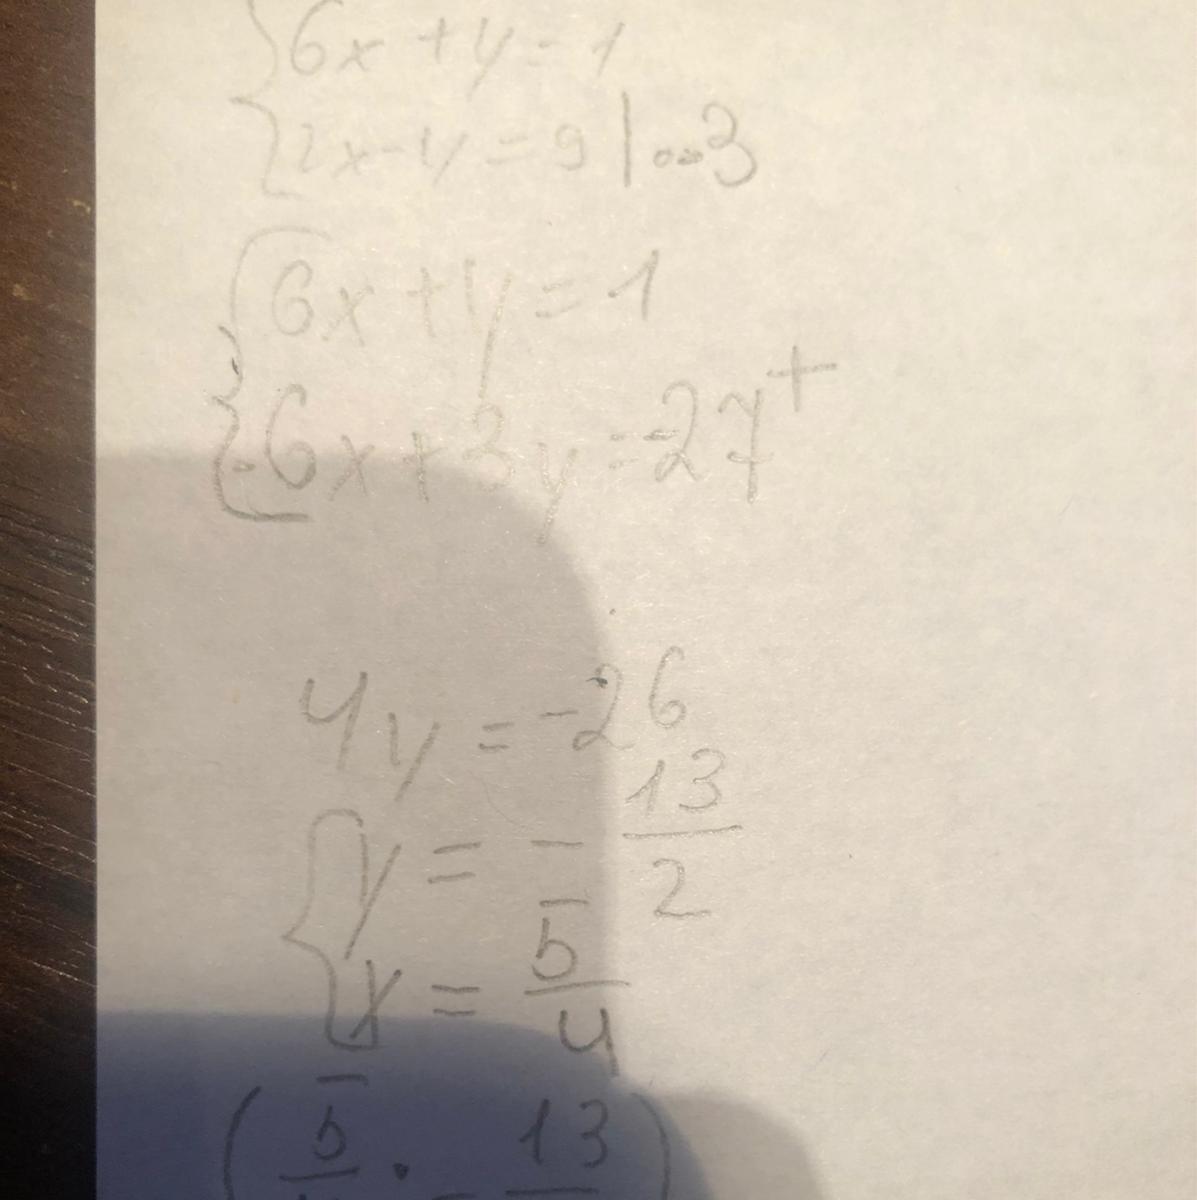 {6x + y = 1
{2x - y = 9 | · -3
{6x + y = 1
{-6x + 3y = -27 +
4y = -26
{y = - 13/2
{x = 5/4
(5/ ; - 13/ )